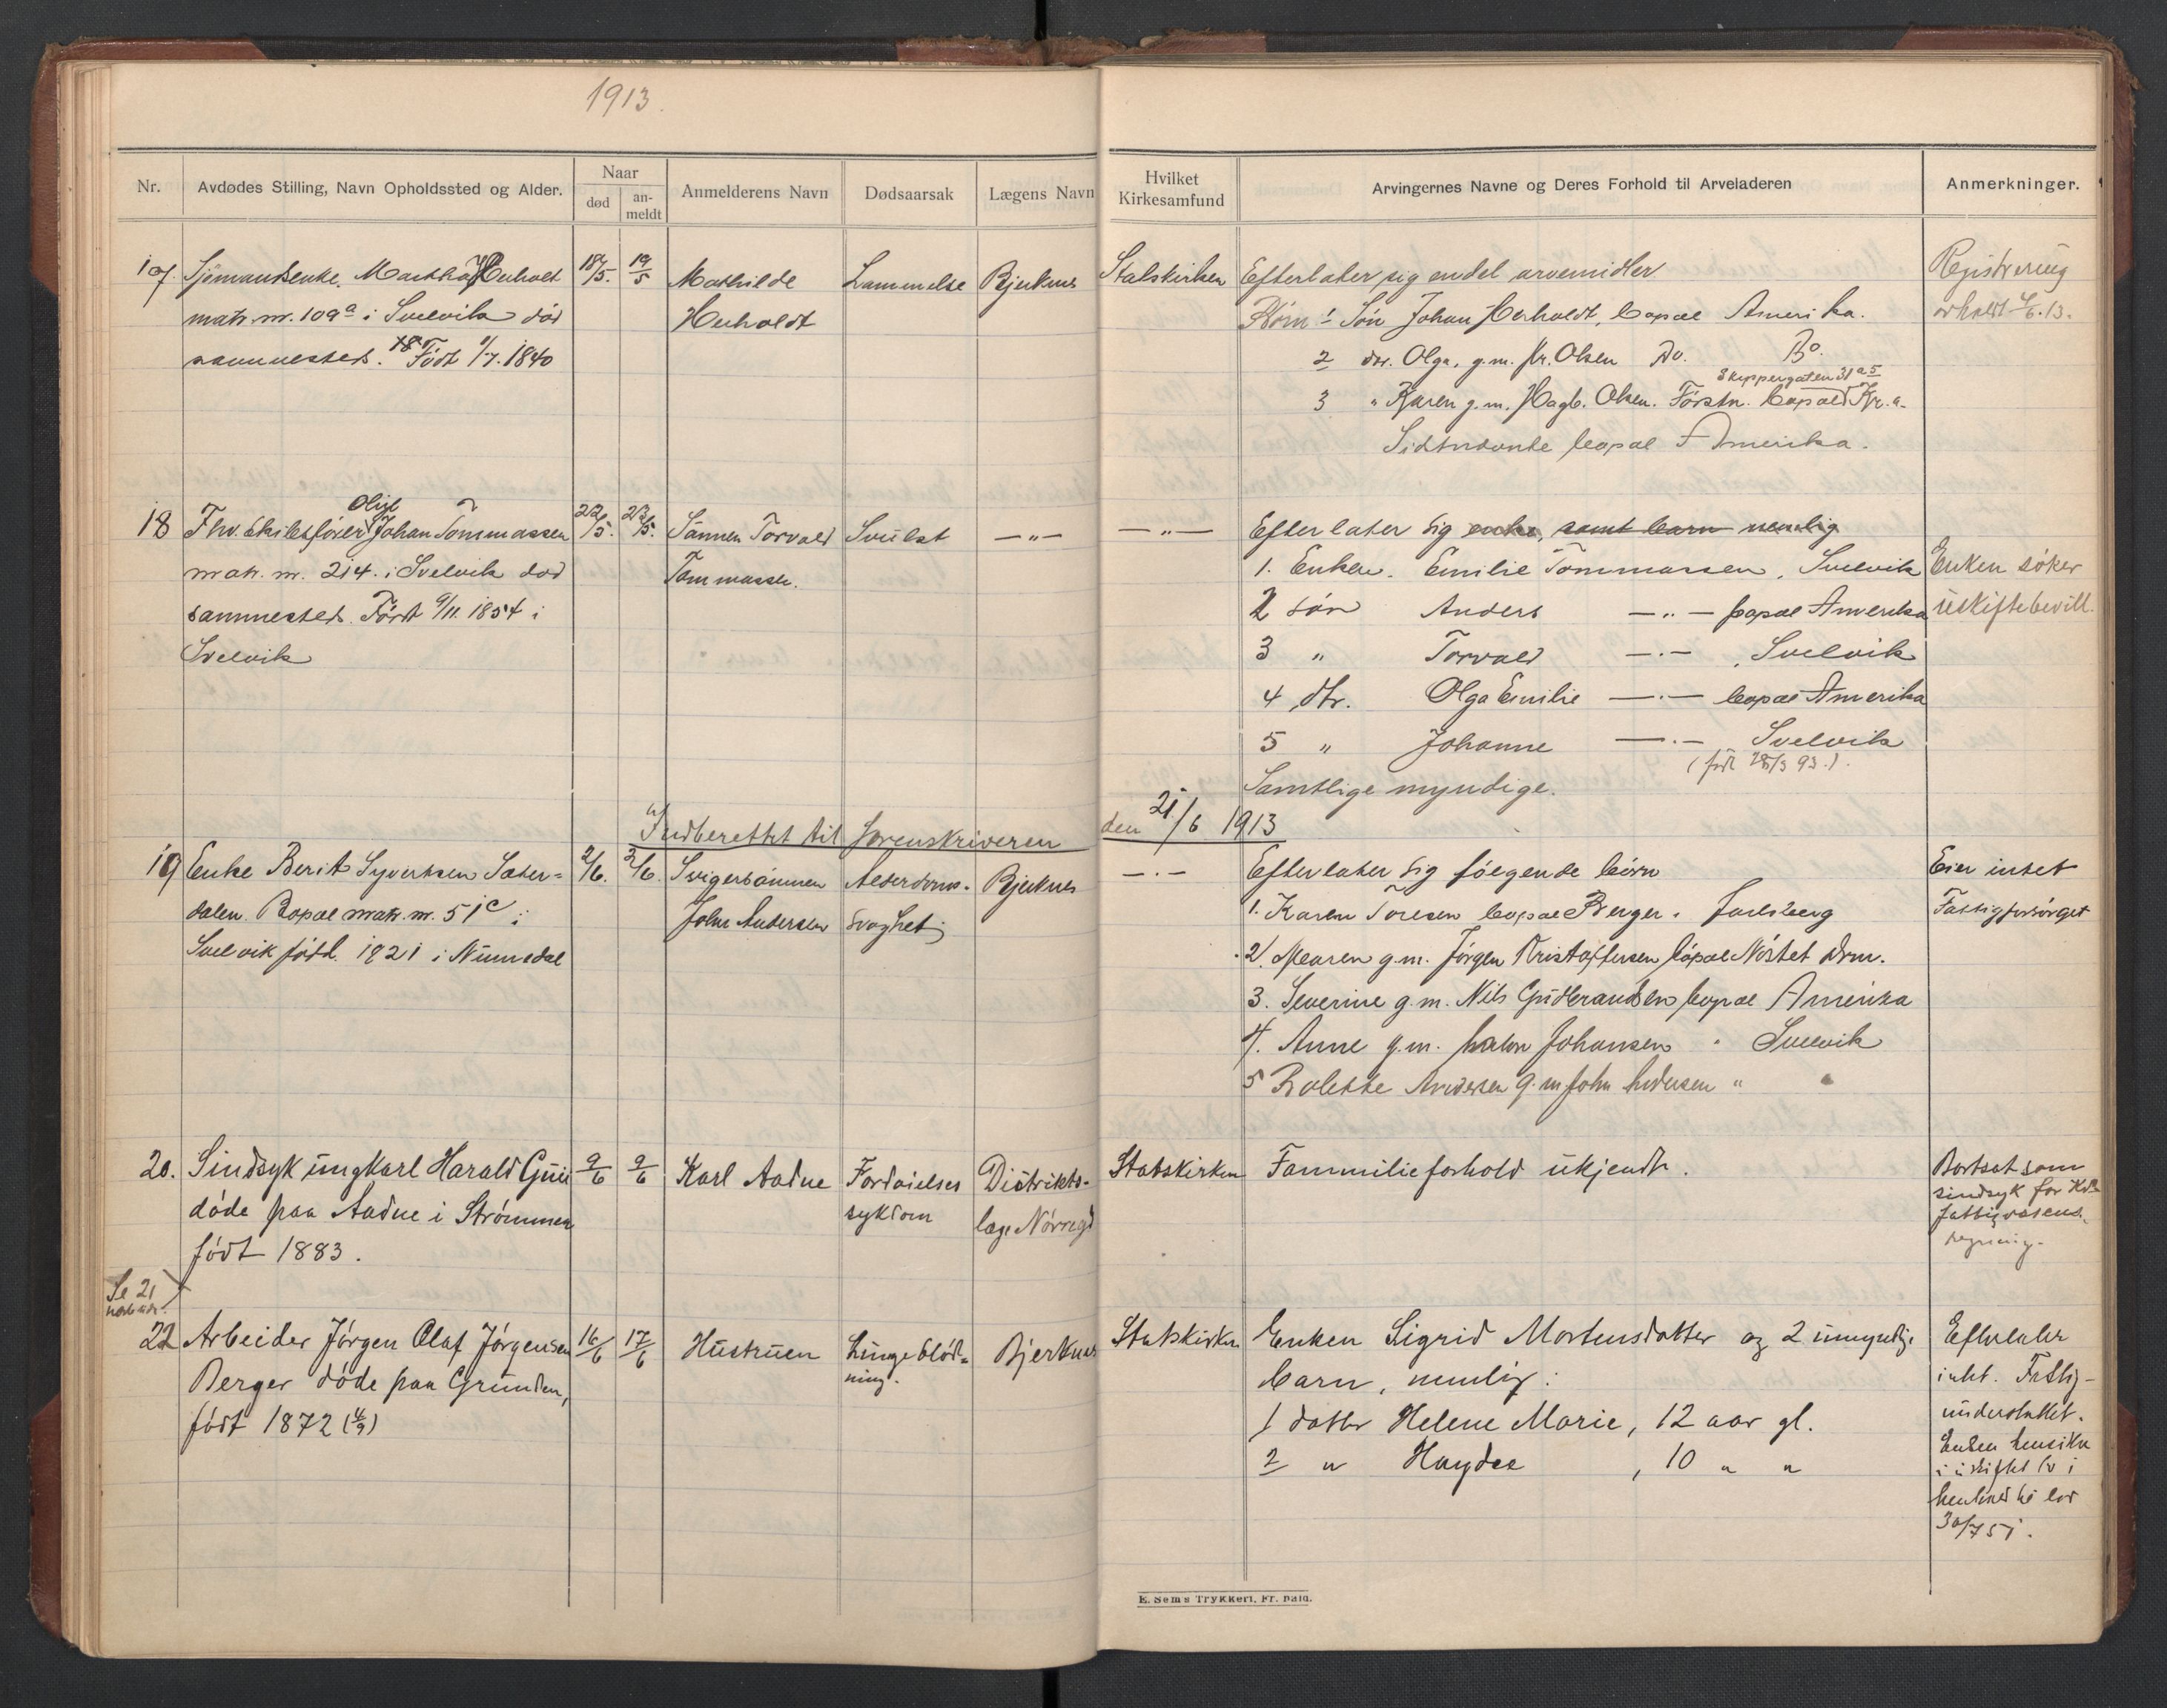 1913.
Nr.
Avdødes Stilling, Navn Opholdssted og Alder.
Naar
død
an-
meldt
Anmelderens Navn
Dødsaarsak
Lægens Navn
Hvilket
Kirkesamfund
Arvingernes Navne og Deres Forhold til Arveladeren
Anmerkninger.
17. Sjømandsenke. Martha Herholdt
matr. nr. 109a i Svelvik død
sammesteds. Født 1/7. 1840
18/5. 19/5
Mathilde
Herholdt
Lammelse
Bjerknes
Statskirken
Efterlater sig endel arvemidler
Børn 1 Søn Johan Herholdt, bopæl Amerika.
2 dtr. Olga, g.m. Olsen Do. Do.
Skippergaten 31 a 5
3 " Karen g.m. Hagb. Olsen. Førstn. bopæl Kr.a.
Sidstnævnte bopæl Amerika.
Registrering
avholdt 4/6. 13.
18 Fhv. Skibsfører Johan Tommassen
Oluf
matr. nr. 214. i Svelvik død
sammesteds. Født 9/11. 1854 i
Svelvik
22/5. 23/5.
Sønnen Torvald
Tommassen.
Svulst
—"—
—"—
Efterlater sig enke, samt barn nemlig
1. Enken. Emilie Tommassen, Svelvik
2 søn Anders —"— bopæl Amerika
3 " Torvald —"— , Svelvik
4 dtr. Olga Emilie —"— bopæl Amerika
5 " Johanne —"— Svelvik
(født 28/3 93.).
Samtlige myndige.
Enken søker
uskiftebevill.
Indberettet til Sorenskriveren den 21/6 1913
19 Enke Berit Syvertsen Sæter-
dalen. Bopæl matr. nr. 51c i
Svelvik født. 1821 i Numedal
2/6. 2/6.
Svigersønnen
John Andersen
Alderdoms-
svaghet
Bjerknes
—"—
Efterlater sig følgende børn
1. Karen Toresen bopæl Berger. Jarlsberg
2. Maren g.m. Jørgen Kristoffersen bopæl Nøstet Drm.
3. Severine g.m. Nils Gudbrandsen bopæl Amerika
4. Anne g.m. Johansen " Svelvik
5 Bolette Andersen g.m John Andersen " "
Eier intet
Fattigforsørget
20. Sindsyk ungkarl Harald
døde paa Aadne i Strømmen
født 1883.
9/6 9/6
Karl Aadne
Fordøielses
sykdom
Distrikts-
læge
Statskirken
Fammilieforhold ukjendt.
Bortsat som
sindsyk for
fattigvæsens
regning.
Se 21
22 Arbeider Jørgen Olaf Jørgensen
Berger døde paa Grunden,
født 1872 (4/9)
16/6 17/6
Hustruen
Lungeblød-
ning.
Bjerknes
Statskirken
Enken Sigrid Mortensdatter og 2 umyndige
barn, nemlig:
1 datter Helene Marie, 12 aar gl.
2 " Haydee , 10 " "
Efterlater
intet. Fattig-
understøttet.
Enken hensitter
i uskiftet bo i
henhold til lov
30/7 51.
E. Sems Trykkeri, Fr.hald.